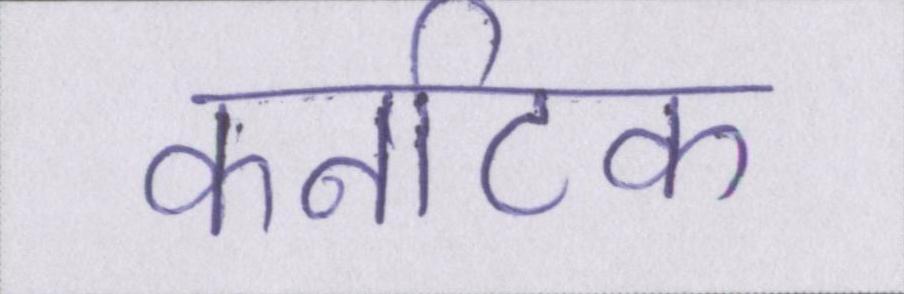 कनटिक